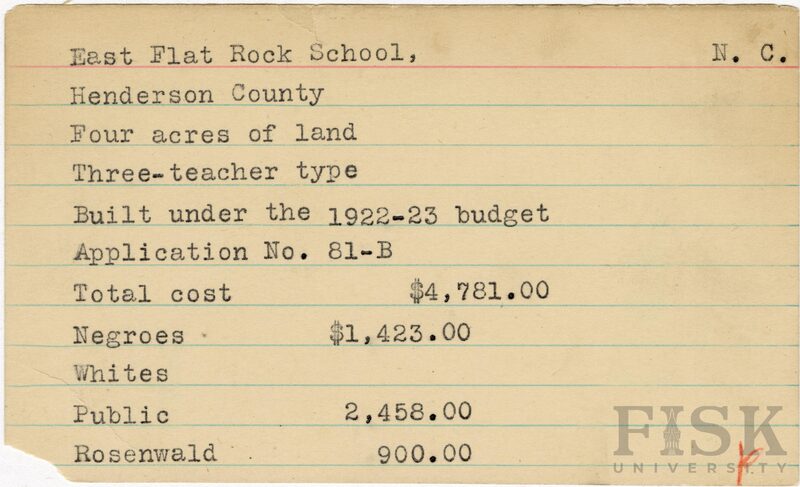 East Flat Rock School, N. C.
Henderson County
Four acres of land
Three-teacher type
Built under the 1922-23 budget
Application No. 81-B
Total cost $4,781.00
Negroes $1,423.00
Whites
Public 2,458.00
Rosenwald 900.00
FISK
UNIVERSITY